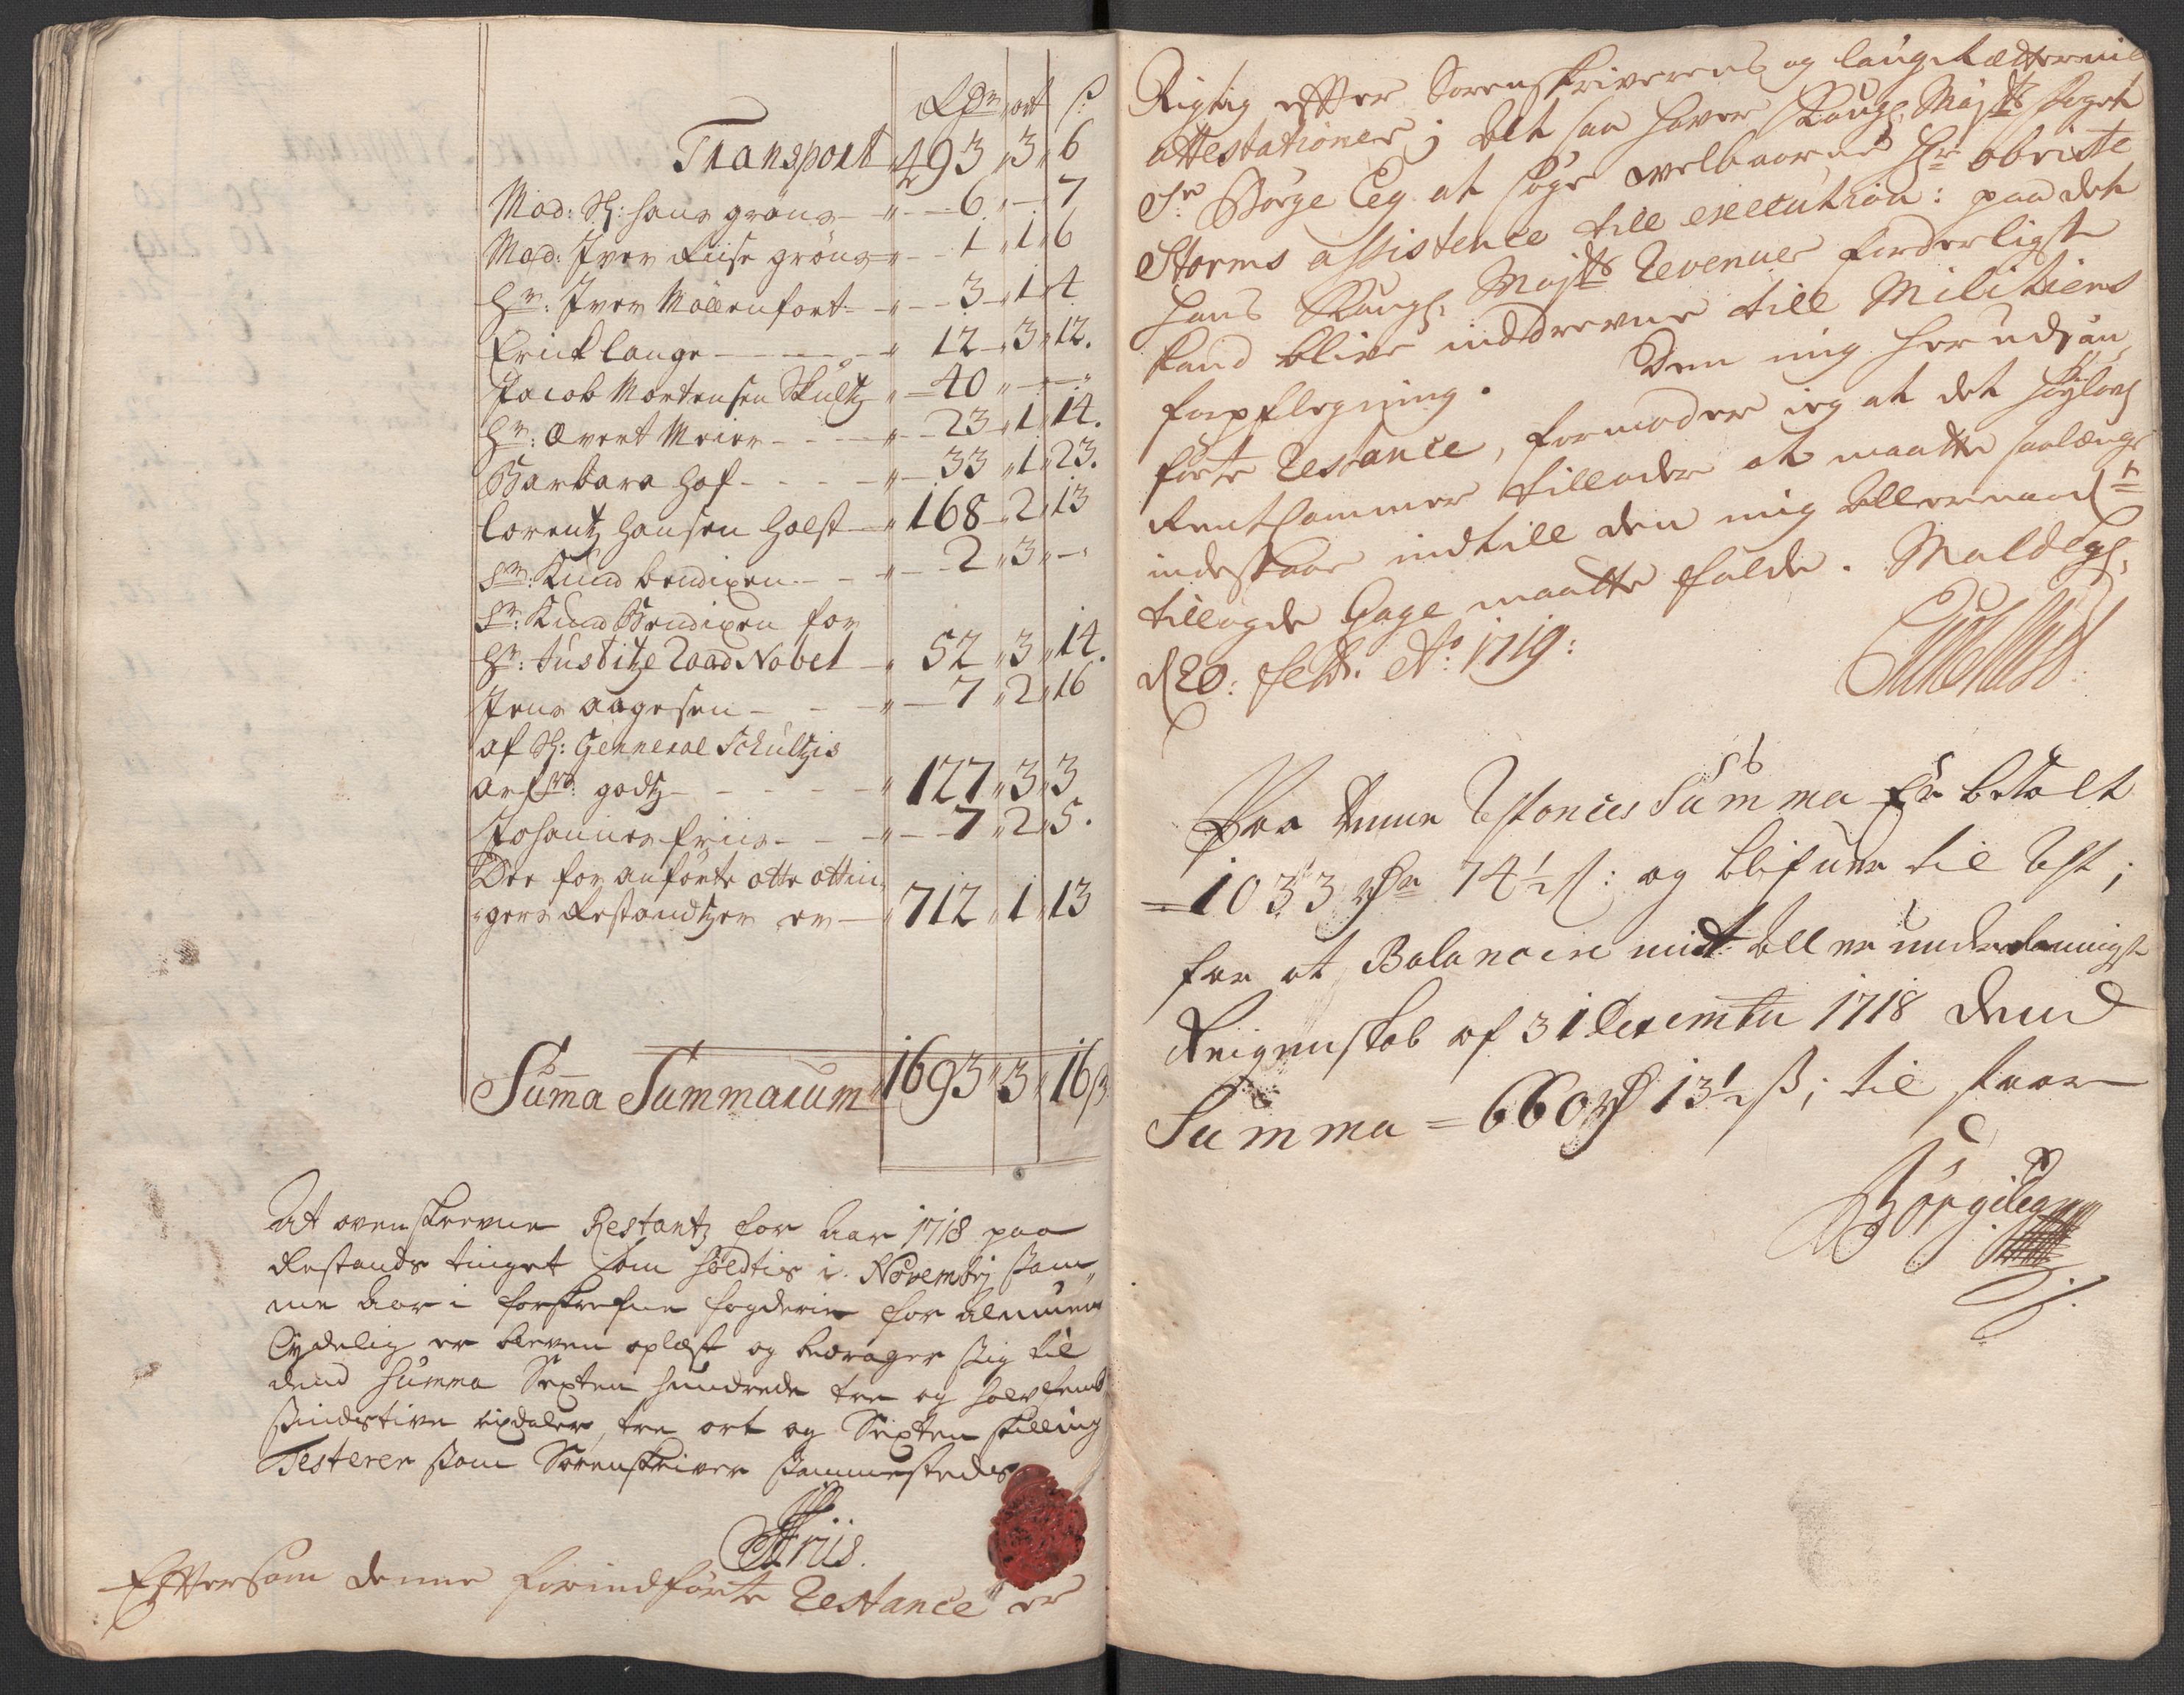 Rdr ort ß
Transport 493 „3„ 6
Mad: Sl: Hans Grøns – „ – 6 „ – 7
Mad: Iver Riise Grøns – „ – 1 „ 1 „ 6
Hr: Iver Mollenfort – „ – 3 „ 1 „ 4
Erick Lange – – – „ 12 „ 3 „ 12.
Jacob Mortensen Skultz „ – 40 „ – „ –
Hr: Evert Meier – – – „ – 23 „ 1 „ 14.
Barbara Hof – – – „ – 33 „ 1 „ 23.
Lorentz Hansen Holst – „ 168 „ 2 „ 13
Sr: Knud Bendixen – – „ – 2 „ 3 „ –
Sr: Knud Bendixen for
Hr: Justitze Raad Nobel – „ 52 „ 3 „ 14.
Jens Aagesen – – – „ – 7 „ 2 „ 16
af Sl: General Schultzis
Arfvs: godtz – – – – „ 127 „ 3 „ 3
Johannes Friis – – „ – 7 „ 2 „ 5.
Der for anførte otte otting
gers Restandtzer er – „ 712 „ 1 „ 13
Sum̄a Summarum „ 1693 „ 3 „ 16 ß
At ovenskrevne Restantz for Aar 1718 paa
Restands tinget som holdtis i Novembrj sam„
me Aar i forskrefne fogderie for Almuen
Lydelig er bleven oplæst og bedrager sig til
dend Summa Sexten hundrede tre og halvfemb
sindstive rixdaler, tre ort og Sexten skilling
Testerer som Sorenskriver sammesteds
Friis.
Eftersom denne forindførte Restance er
Rigtig efter Sorenskriverens og laugrættermend
attestationer; Alt saa haver Kongl. Mayts foget
Sr Børge Eeg at søge velbaarne Hr obriste
Storms assistence till execution: paa det
Hans Kongl. Mayts Revenuer forderligst
kand blive inddrevne till Militiens
forpflegning. Den mig her udj an„
førte Restance, formoder jeg at det Høylovl
RentCammer tillader at maatte saalænge
indestaar indtill den mig Allernaadt
tillagde Gage maatte falde. Moldegl.
d 20: Feb. Ao: 1719:
Paa denne Restances Summa Er betalt
= 1033 rdr 74½ ß: og blifuer til Rest;
for at Balancere mit Aller underdanigste
Reigenskab af 31 Decembr 1718 dend
Summa = 660 rd 13½ ß; til staar
Børge Eeg